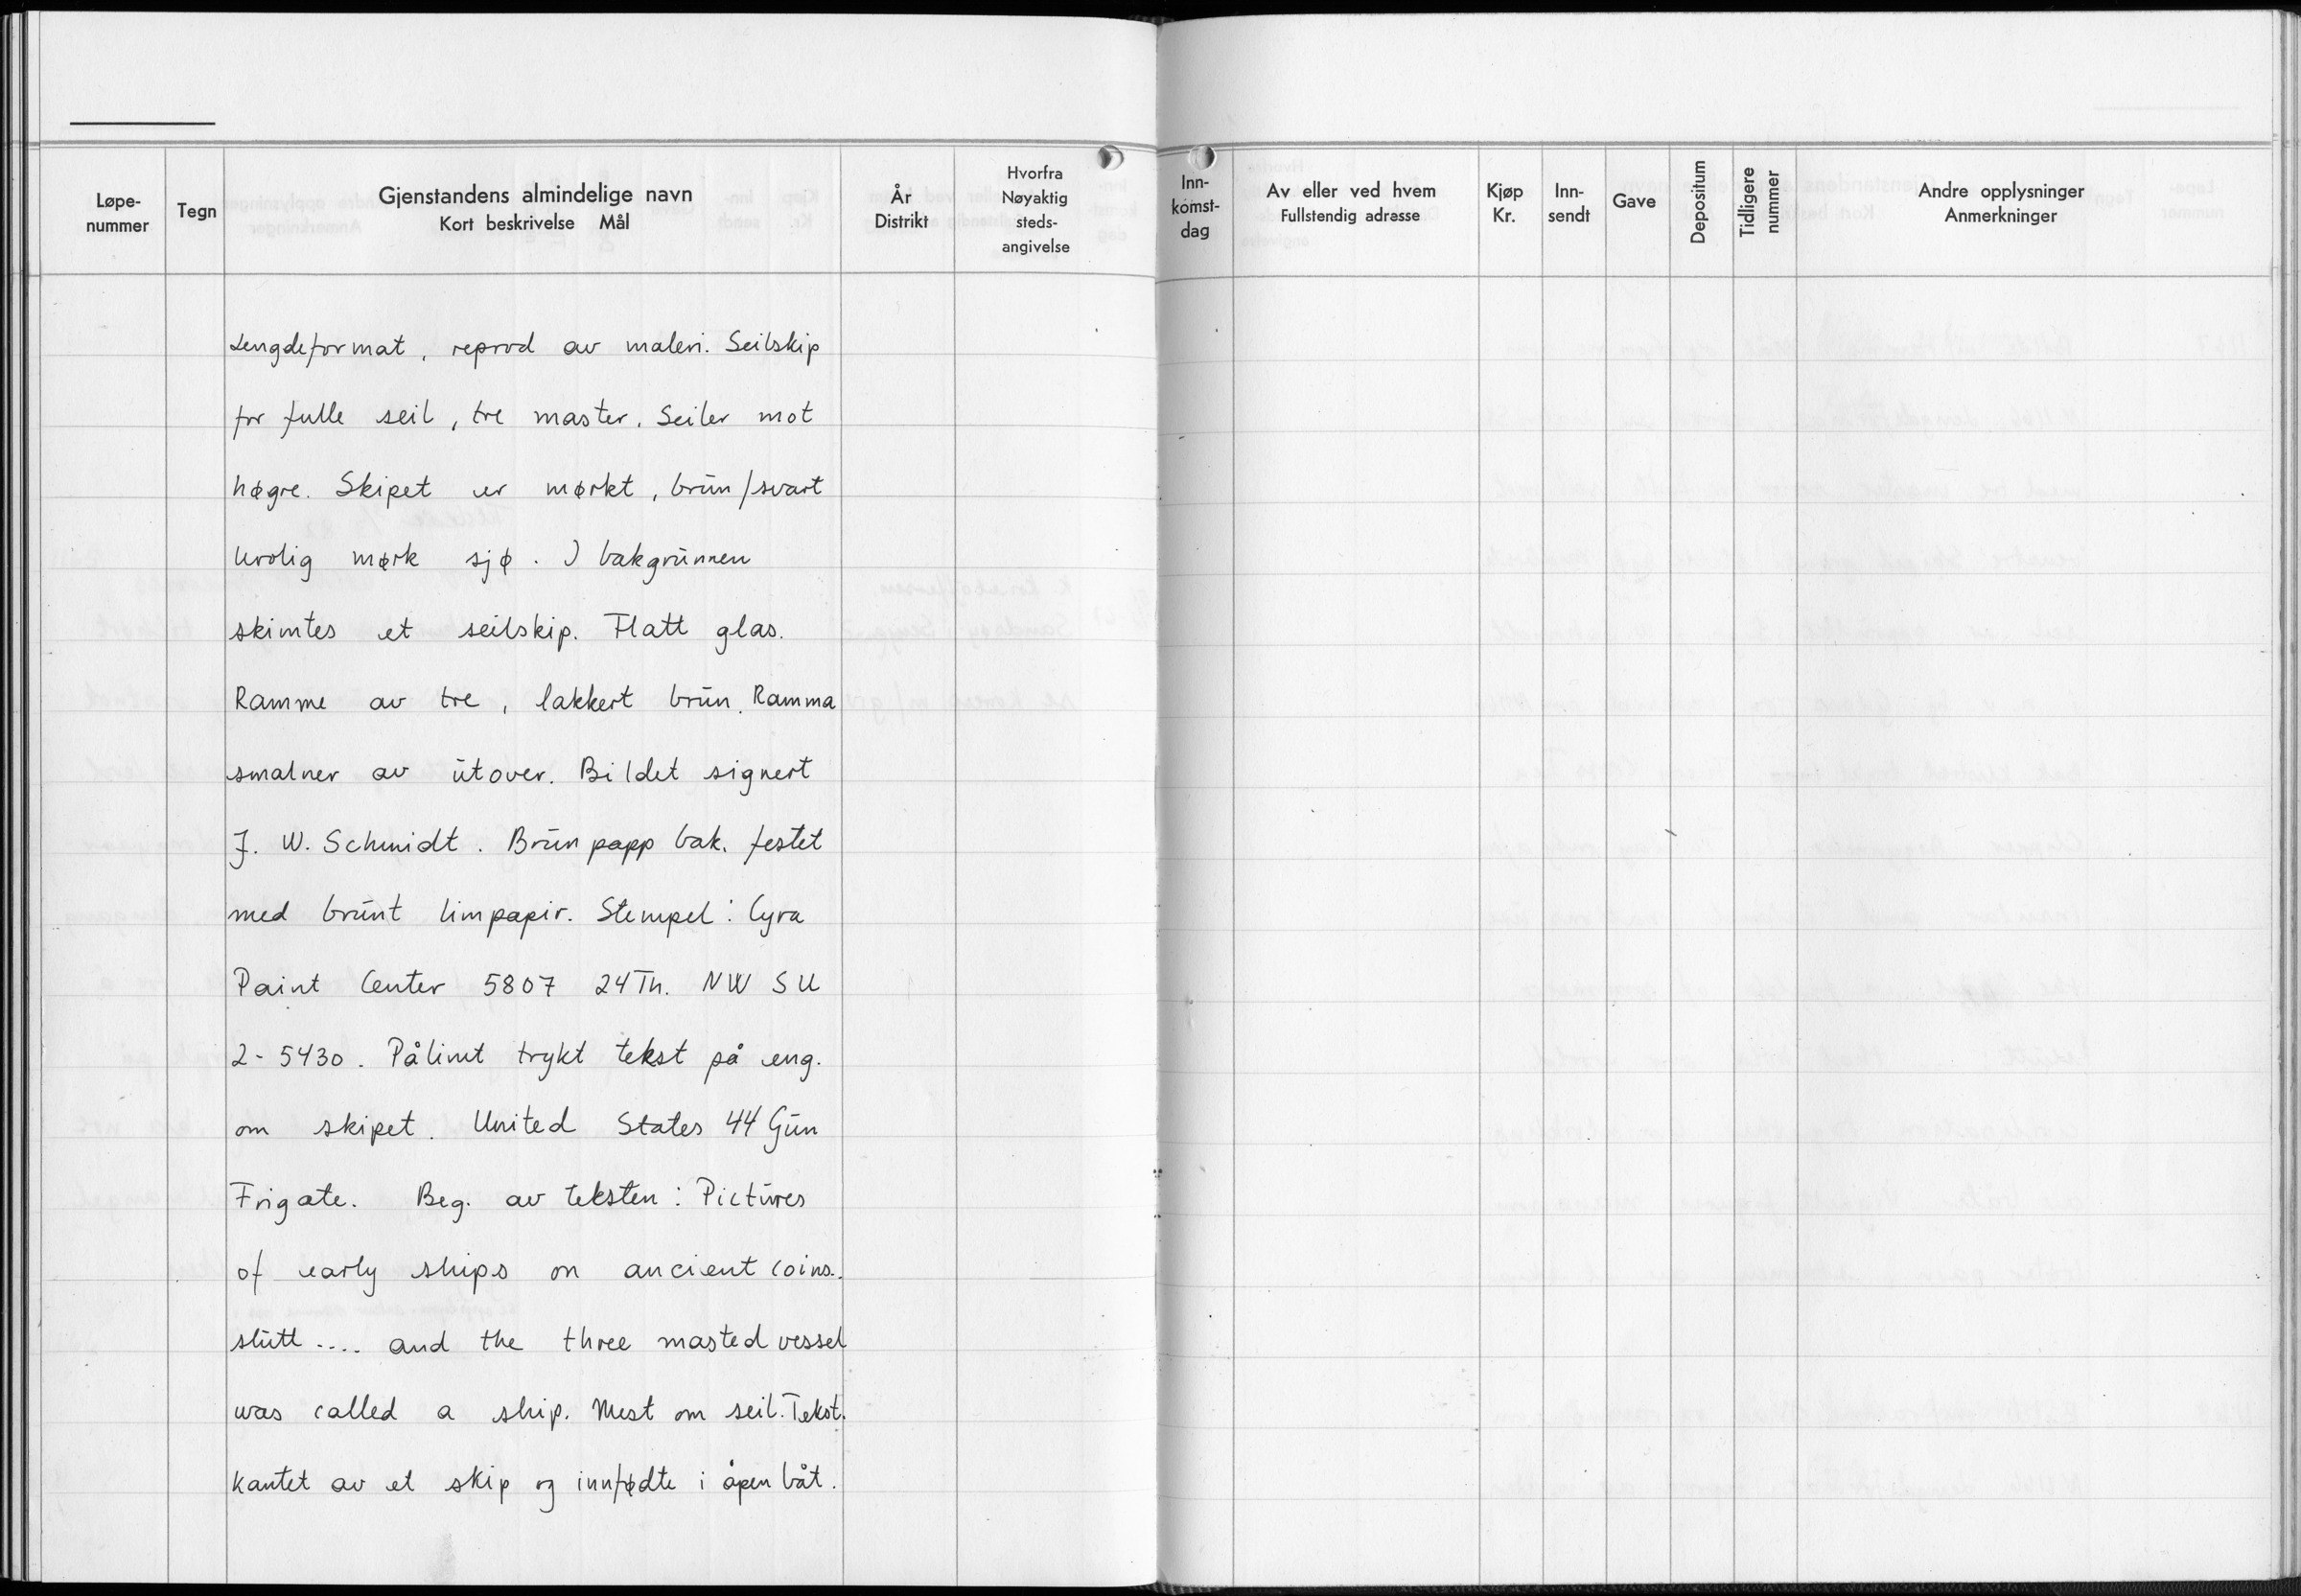 Løpe-
nummer
Tegn
Gjenstandens almindelige navn
Kort beskrivelse Mål
År
Distrikt
Hvorfra
Nøyaktig
steds-
angivelse
Inn-
komst-
dag
Av eller ved hvem
Fullstendig adresse
Kjøp
Kr.
Inn-
sendt
Gave
Depositum
Tidligere
nummer
Andre opplysninger
Anmerkninger
Lengdeformat, reprod av maleri. Seilskip
for fulle seil, tre master. Seiler mot
høgre. Skipet er mørkt, brun/svart
Urolig mørk sjø. I bakgrunnen
skimtes et seilskip. Flatt glas.
Ramme av tre, lakkert brun. Ramma
smalner av utover. Bildet signert
J. W. Schmidt. Brun papp bak, festet
med brunt limpapir. Stempel: Cyra
Paint Center 5807 24Th. NW SU
2-5430. Pålimt trykt tekst på eng.
om skipet. United States 44 Gun
Frigate. Beg. av teksten: Pictures
of early ships on ancient coins..
slutt .... and the three masted vessel
was called a ship. Mest om seil. Tekst.
kantet av et skip og innfødte i åpen båt.